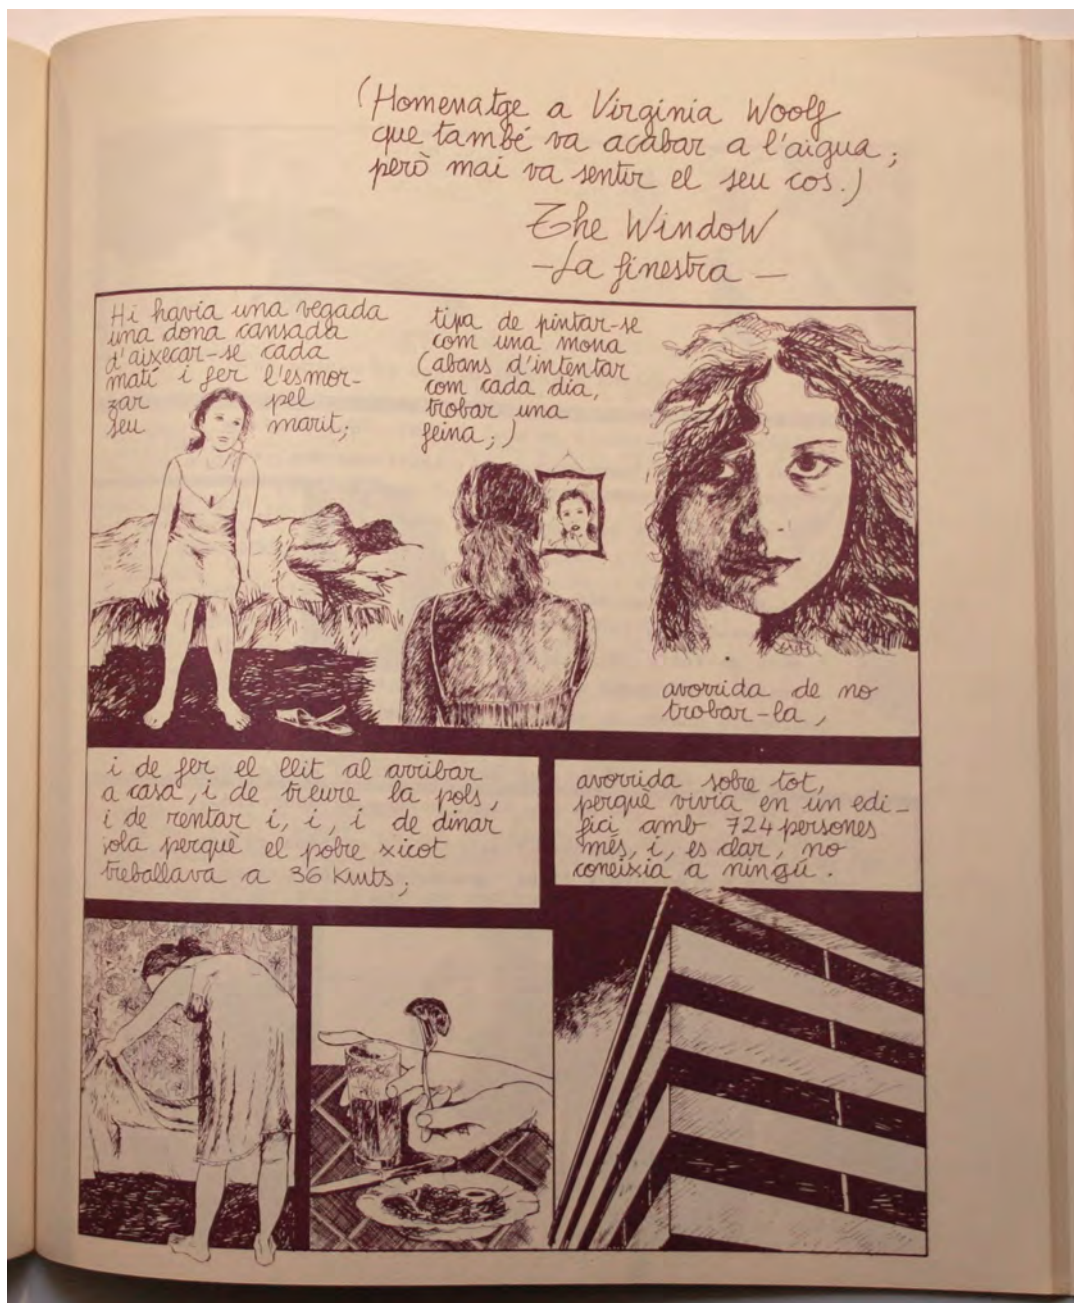 (Homenatge a Virginia Woolf
que també va acabar a l'aigua;
però mai va sentir el seu cos.)
The Window
- La finestra -
Hi havia una vegada
una dona cansada
d'aixecar-se cada
matí i fer l'esmor-
zar pel
seu marit;
tipa de pintar-se
com una mona
(abans d'intentar
com cada dia,
trobar una
feina;)
avorrida de no
trobar-la,
i de fer el llit al arribar
a casa, i de treure la pols,
i de rentar i, i, i de dinar
sola perquè el pobre xicot
treballava a 36 Kmts;
avorrida sobre tot,
perquè vivia en un edi-
fici amb 724 persones
més, i, es clar, no
coneixia a ningú.